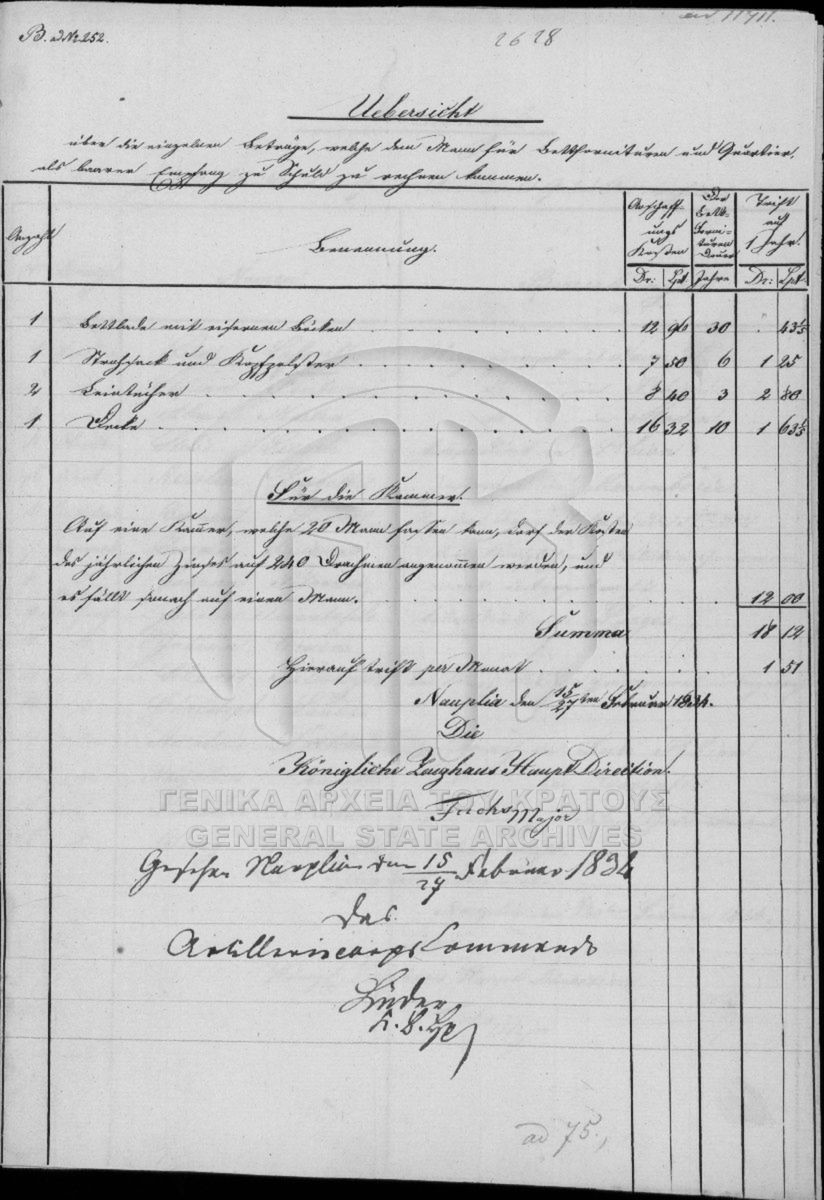 B. ad No 252.
2628
ad 11911.
Uebersicht
über die einzelnen Beträge, welche dem Mann für Bettfornituren und Quartier,
als baarer Empfang zu Schuld zu rechnen kommen.
Anzahl
Benennung.
Anschaff-
ungs
Kosten
Der
Bett-
Forni-
turen
Dauer
Trift
auf
1 Jahr.
Dr: Lpt. Jahre Dr: Lpt.
1 Bettlade mit eisernen Böcken 12 96 30 . 43⅕
1 Strohsack und Kopfpolster 7 50 6 1 25
2 Leintücher 8 40 3 2 80
1 Decke 16 32 10 1 63⅕
Für die Kammer.
Auf eine Kammer, welche 20 Mann fassen kann, darf der Kosten
des jährlichen Zinses auf 240 Drachmen angenommen werden, und
es fällt sonach auf einen Mann. 12 00
Summa 18 12
Hierauf trifft per Monat 1 51
Nauplia den 15/27ten Februar 1834.
Die
Königliche Zeughaus Haupt Direction.
Fuchs Major
ΓΕΝΙΚΑ ΑΡΧΕΙΑ ΤΟΥ ΚΡΑΤΟΥΣ
GENERAL STATE ARCHIVES
Gesehen Nauplia den 15/27 Februar 1834
Das
Artilleriecorps Commando
Lüder
ad 75.